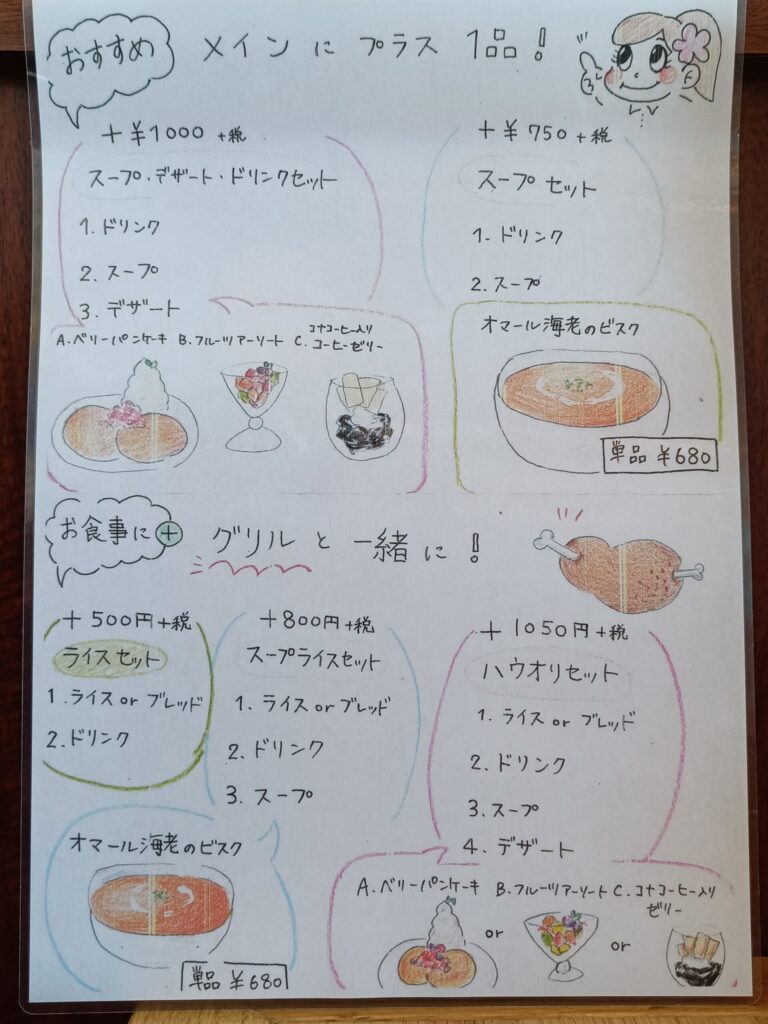 おすすめ
メインにプラス1品!
+¥1000+税
スープ・デザート・ドリンクセット
1.ドリンク
2.スープ
3.デザート
A.ベリーパンケーキ B.フルーツアーソート C.コナコーヒー入りコーヒーゼリー
+¥750+税
スープセット
1.ドリンク
2.スープ
オマール海老のビスク
単品 ¥680
お食事に+
グリルと一緒に!
+500円+税
ライスセット
1.ライスorブレッド
2.ドリンク
+800円+税
スープライスセット
1.ライスorブレッド
2.ドリンク
3.スープ
オマール海老のビスク
単品 ¥680
+1050円+税
ハウオリセット
1.ライスorブレッド
2.ドリンク
3.スープ
4.デザート
A.ベリーパンケーキ B.フルーツアーソート C.コナコーヒー入りゼリー
or
or